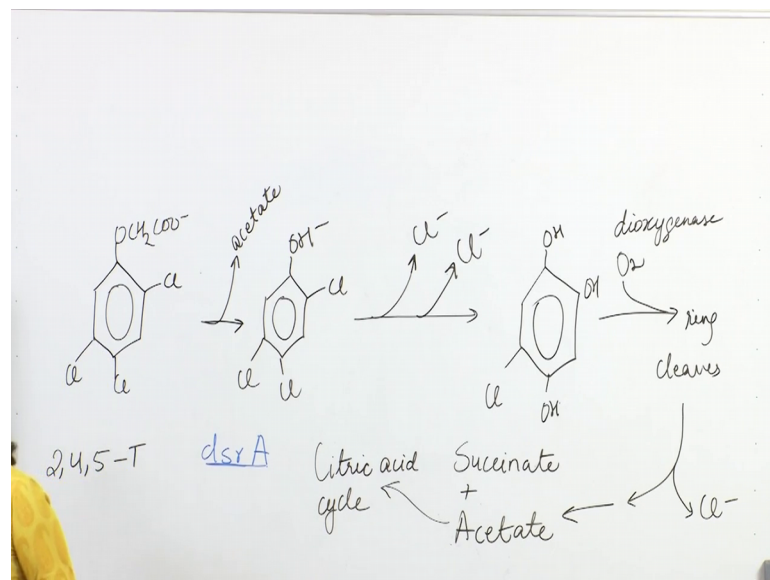 OCH2COO-
Cl
Cl
Cl
acetate
OH-
Cl
Cl
Cl
Cl-
Cl-
OH
OH
Cl
OH
dioxygenase
O2
ring
cleaves
Cl-
2,4,5-T
dsrA
Citric acid
cycle
Succinate
+
Acetate